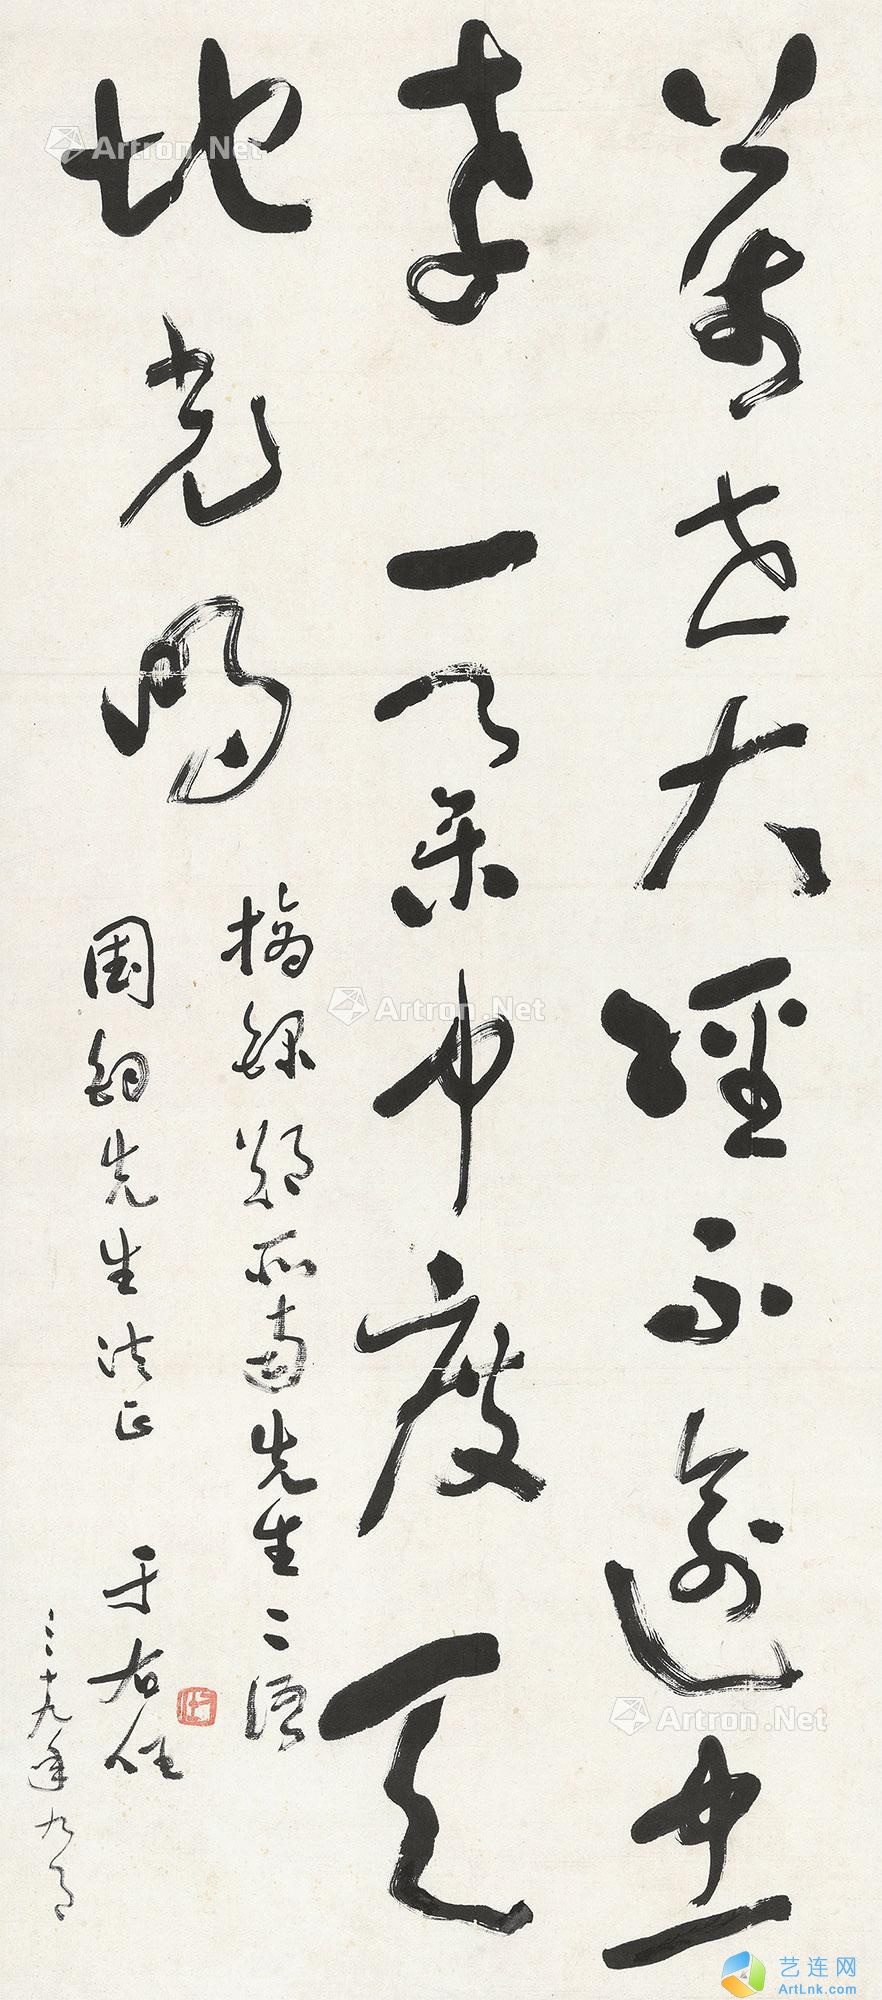 萬世大經不逾忠
孝一中度天
地光明
摘錄鄭所南先生二語
國鈞先生法正 于右任
三十九年九月
Artron.Net
Artron.Net
Artron.Net
艺连网
ArtLnk.com